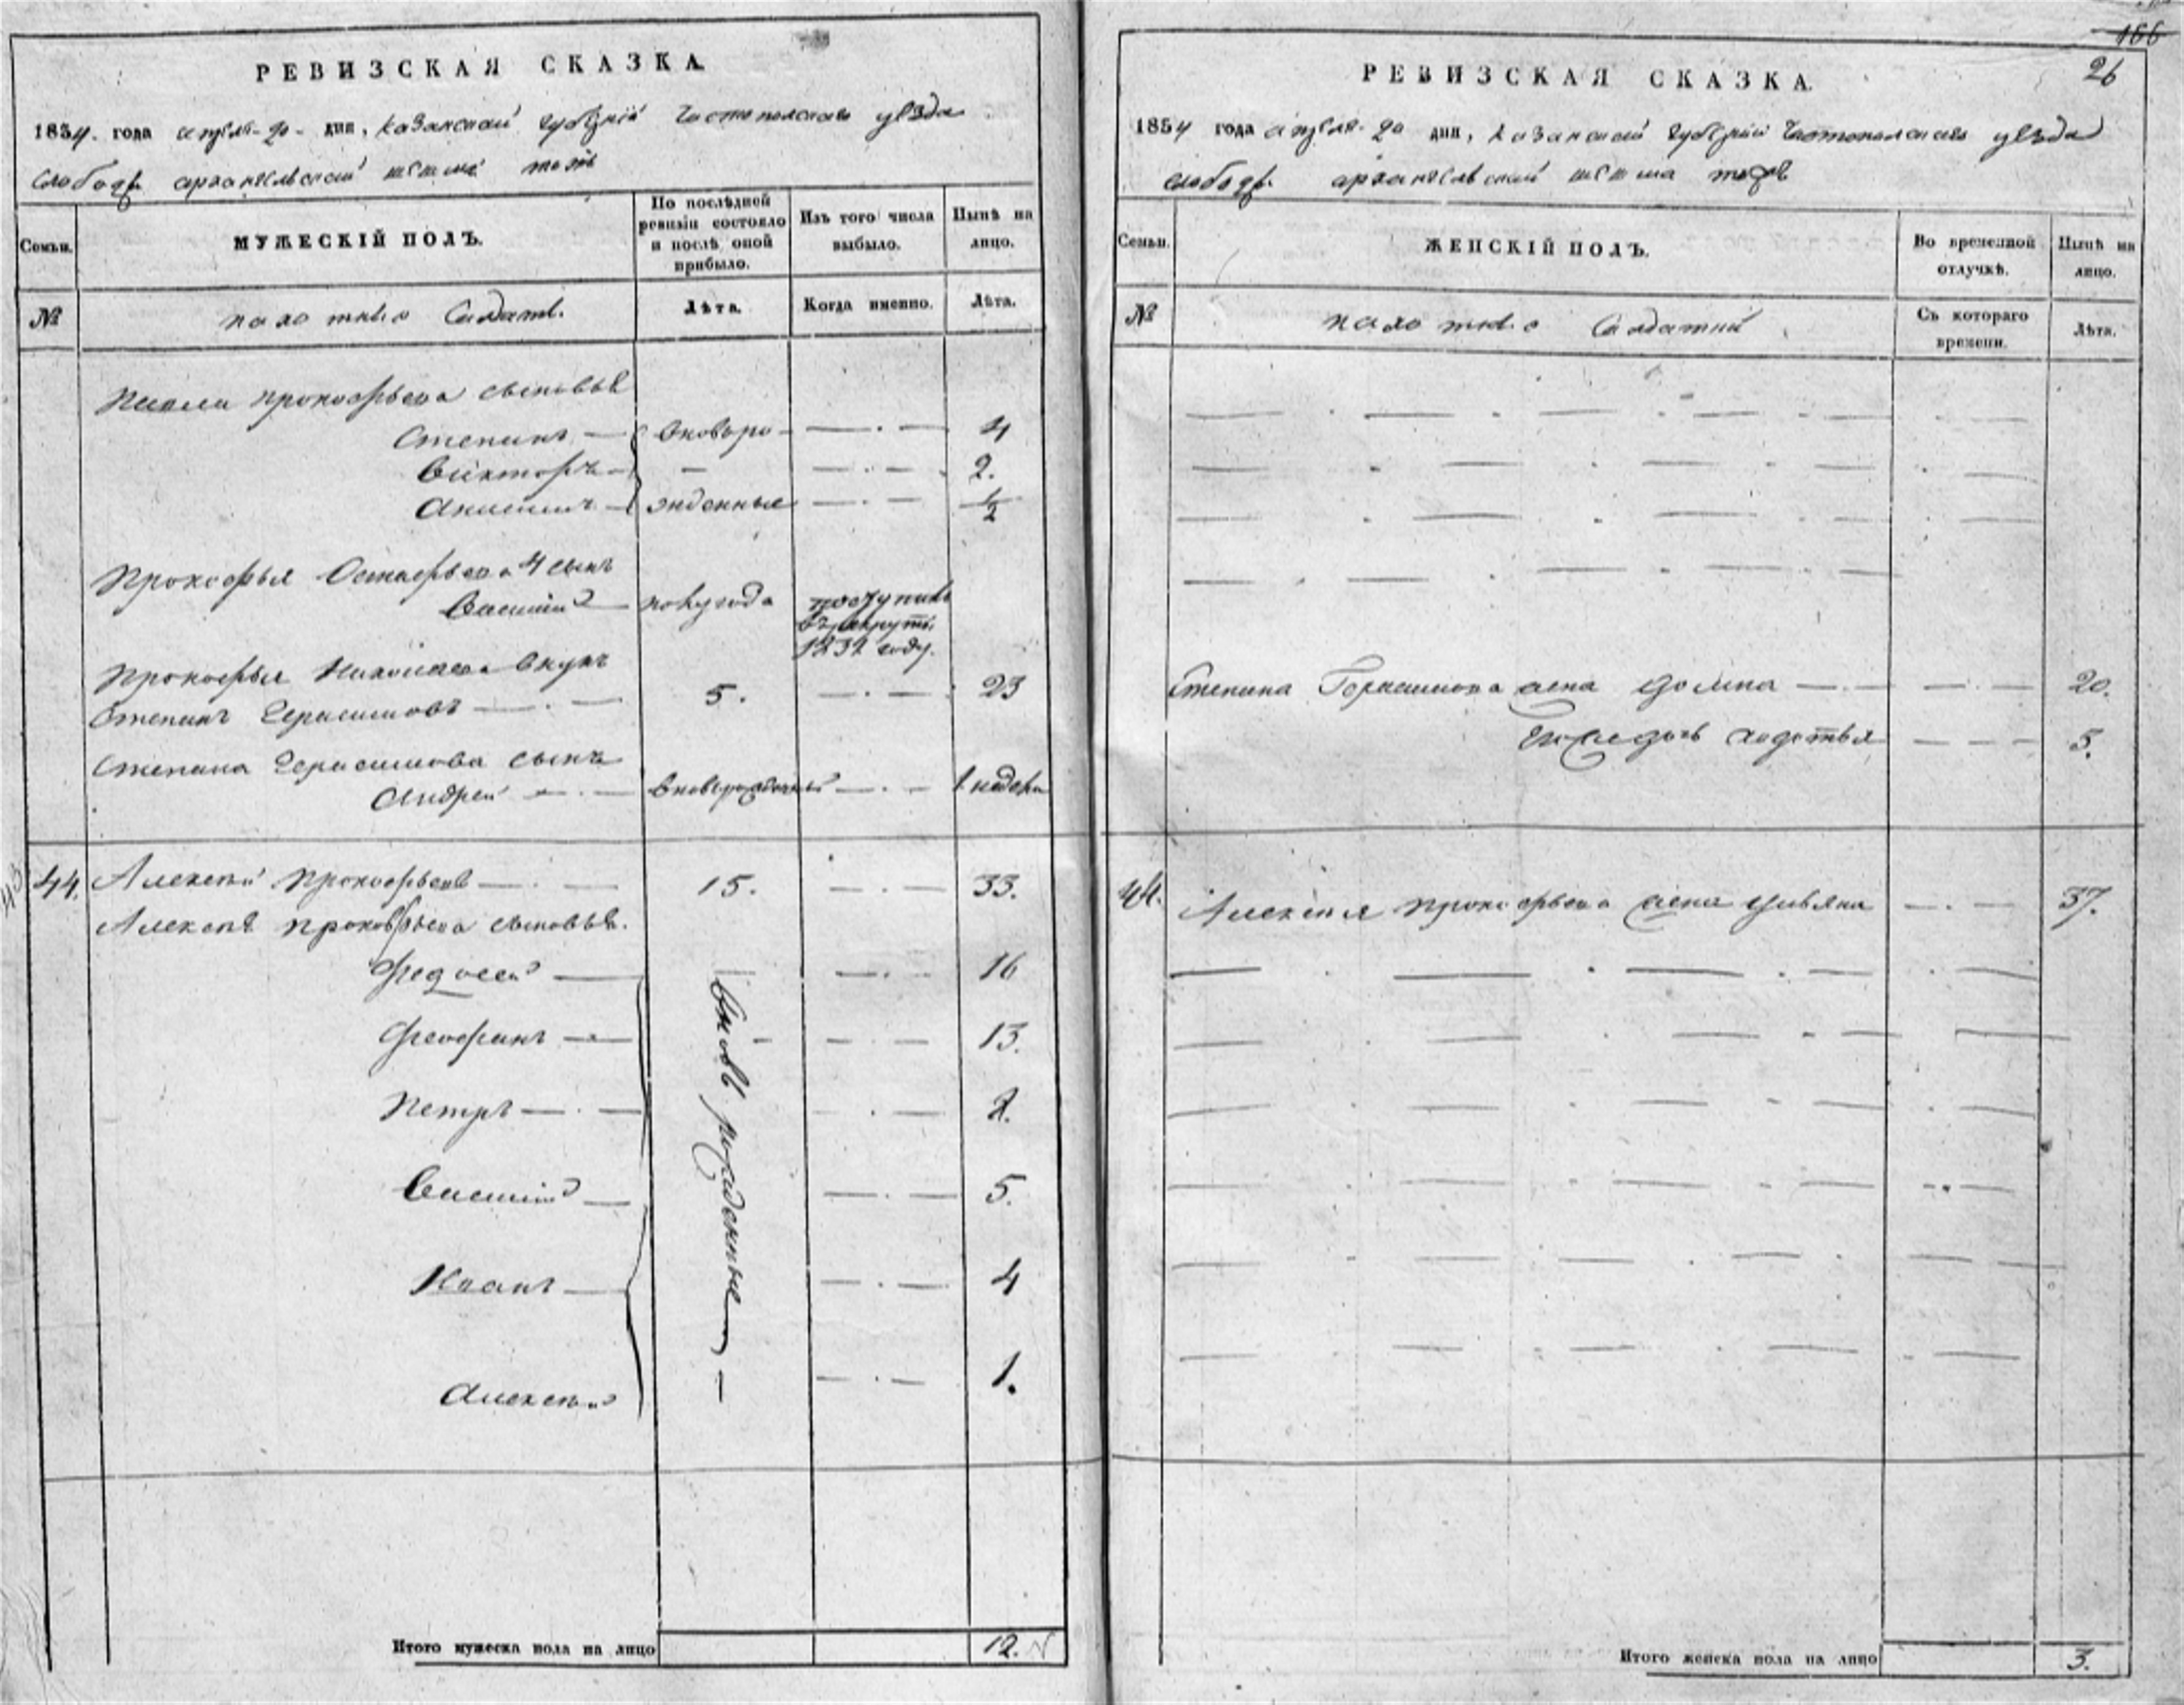 РЕВИЗСКАЯ СКАЗКА
1834. года апреля 20 дня, Казанской губернии Чистопольскаго уезда
слободы архангельской
Семьи.
МУЖЕСКІЙ ПОЛЪ.
По послѣдней ревизіи состояло и послѣ оной прибыло.
Изъ того числа выбыло.
Нынѣ на лицо.
№
пахотныхъ Солдатъ.
Лѣта.
Когда именно.
Лѣта.
прокофьева сыновья
Степанъ вноворо- 4
Викторъ 2.
жденные 1/2
Прокофья Остафьева 4 сынъ
Василий полугода поступилъ
въ рекруты
1832 году.
Прокофья Николаева внукъ
Степанъ Герасимовъ 5. 23
Степана Герасимова сынъ
Андрей вноворожденный 1 недели
43
44. Алексей Прокофьевъ 15. 33.
Алексея прокофьева сыновья.
Федосей 16
Феофанъ 13.
Петръ
Василий 5.
Иванъ 4
Алексей 1.
вновь рожденные
Итого мужеска пола на лицо 12.
166
26
РЕВИЗСКАЯ СКАЗКА.
1834 года апреля 20 дня, Казанской губернии Чистопольскаго уезда
слободы архангельской
Семьи.
ЖЕНСКІЙ ПОЛЪ.
Во временной отлучкѣ.
Нынѣ на лицо.
№
пахотныхъ Солдатъ
Съ котораго времени.
Лѣта.
Степана Герасимова жена Домна 20.
Его дочь 5.
44. Алексея прокофьева жена Ульяна 37.
Итого женска пола на лицо 3.